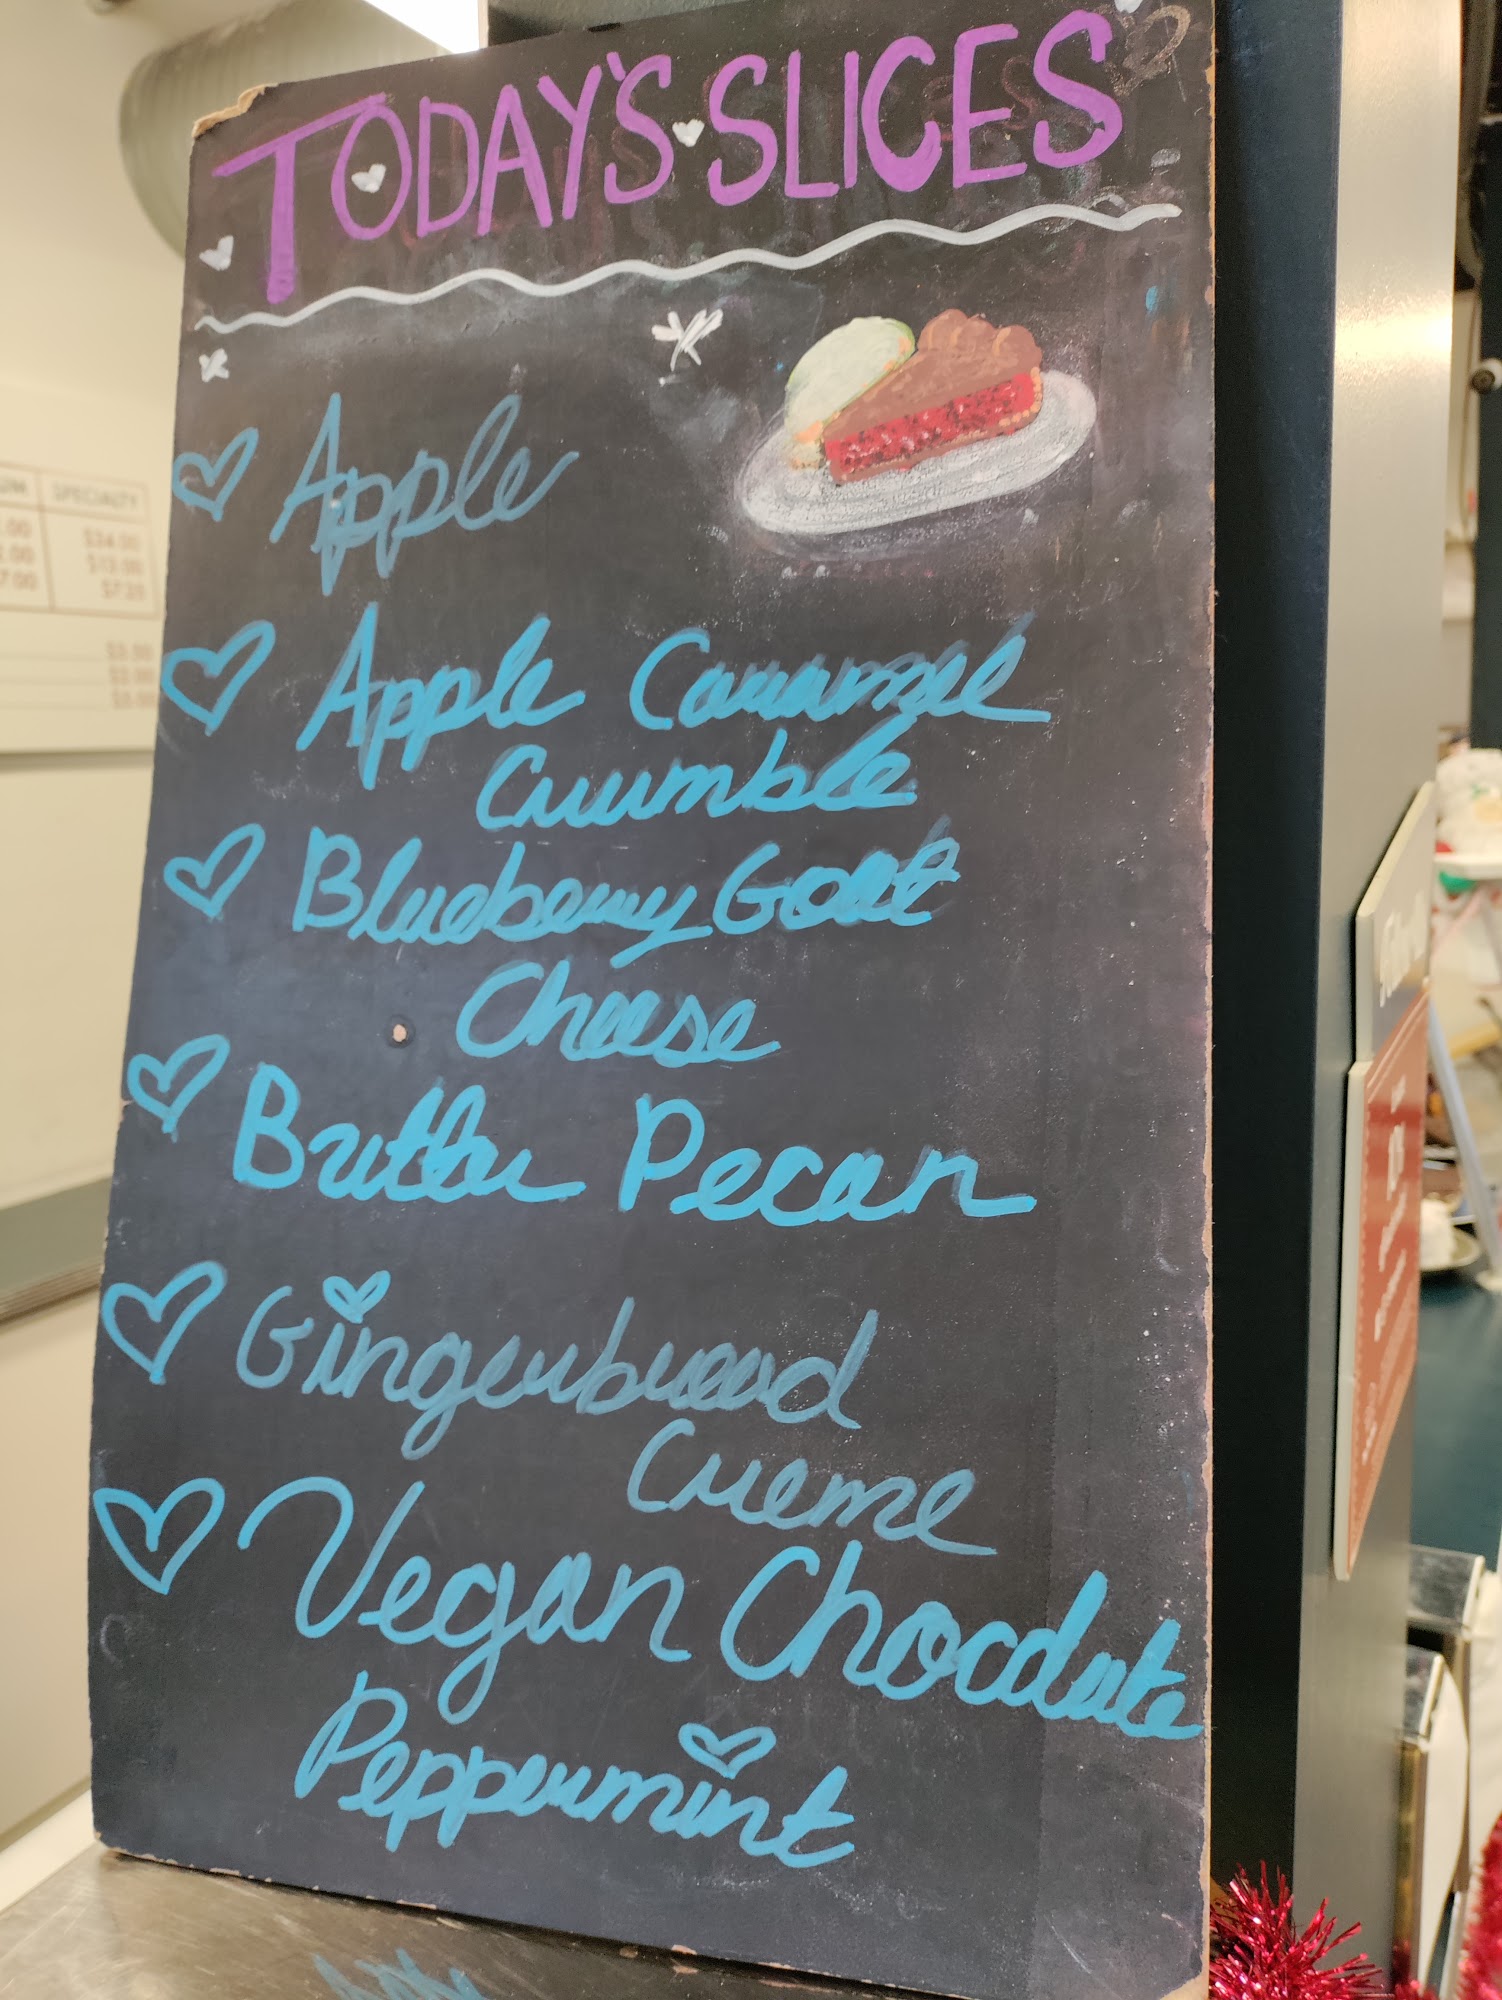 TODAY'S SLICES
Apple
Apple Caramel
Crumble
Blueberry Goat
Cheese
Butter Pecan
Gingerbread
Creme
Vegan Chocolate
Peppermint
SPECIALTY